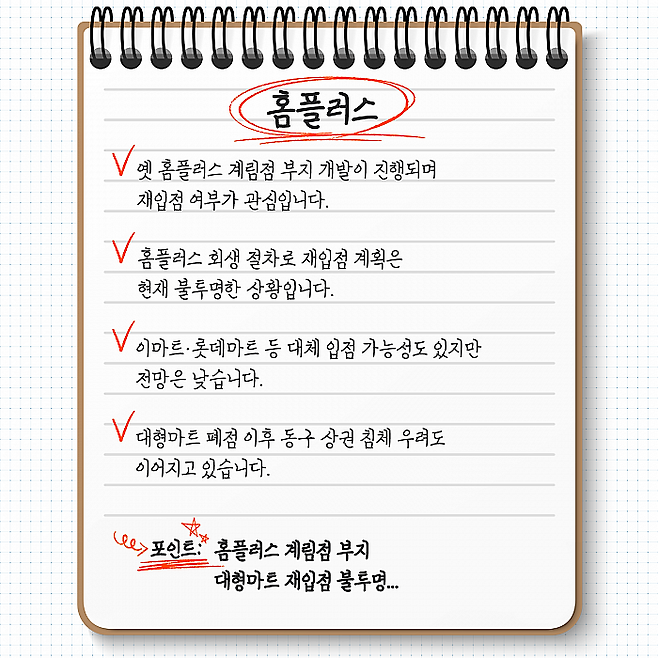 홈플러스
옛 홈플러스 계림점 부지 개발이 진행되며
재입점 여부가 관심입니다.
홈플러스 회생 절차로 재입점 계획은
현재 불투명한 상황입니다.
이마트·롯데마트 등 대체 입점 가능성도 있지만
전망은 낮습니다.
대형마트 폐점 이후 동구 상권 침체 우려도
이어지고 있습니다.
포인트: 홈플러스 계림점 부지
대형마트 재입점 불투명...